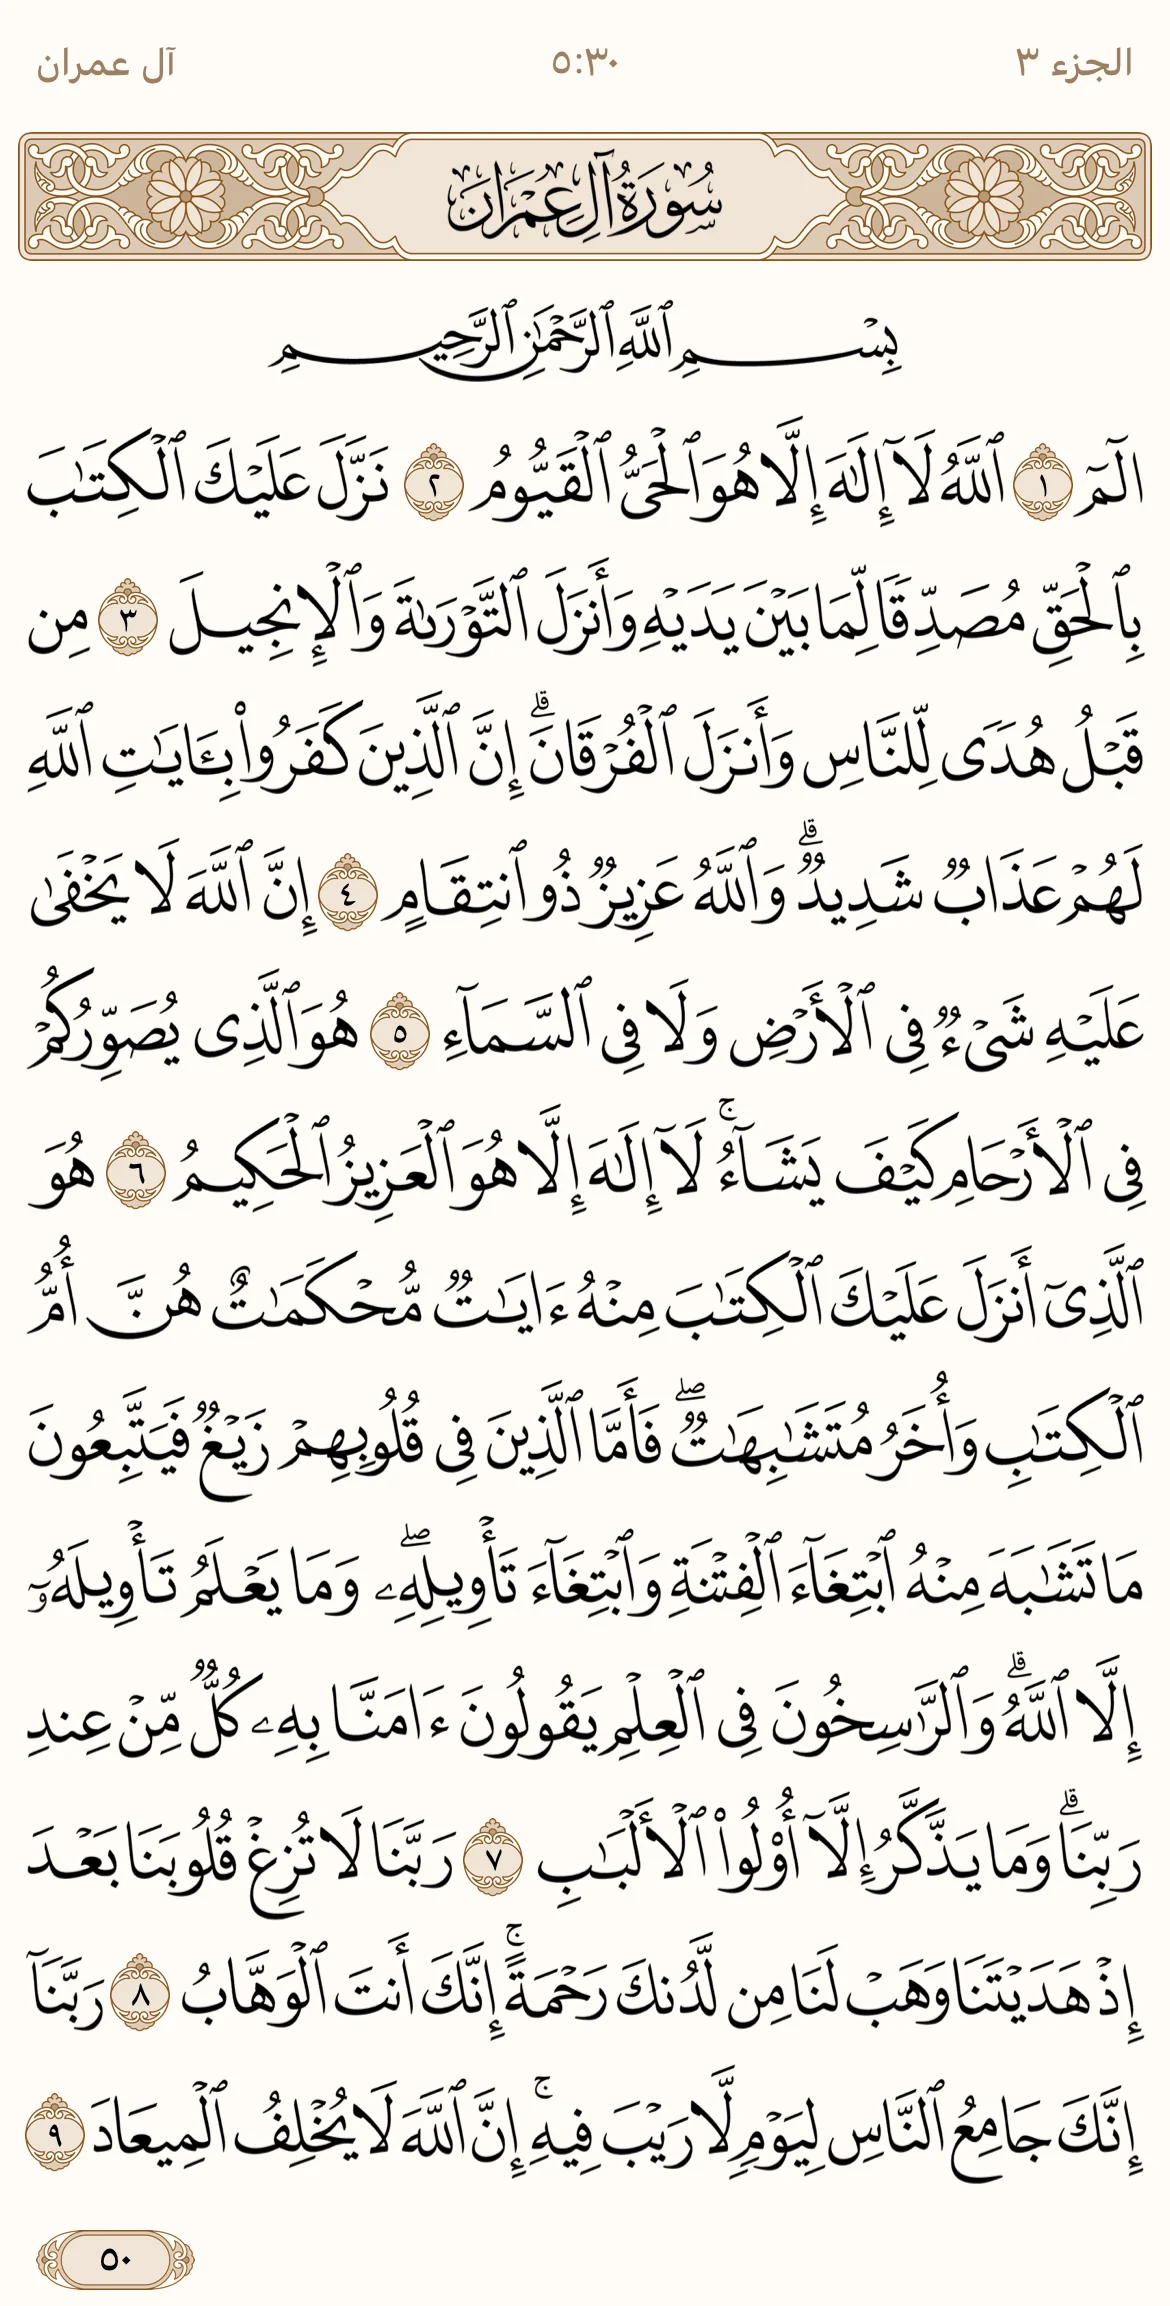 الجزء ٣
٥:٣٠
آل عمران
سُورَةُ آلِ عِمْرَانَ
بِسْمِ ٱللَّهِ ٱلرَّحْمَٰنِ ٱلرَّحِيمِ
الٓمٓ ١ ٱللَّهُ لَآ إِلَٰهَ إِلَّا هُوَ ٱلْحَىُّ ٱلْقَيُّومُ ٢ نَزَّلَ عَلَيْكَ ٱلْكِتَٰبَ
بِٱلْحَقِّ مُصَدِّقًا لِّمَا بَيْنَ يَدَيْهِ وَأَنزَلَ ٱلتَّوْرَىٰةَ وَٱلْإِنجِيلَ ٣ مِن
قَبْلُ هُدًى لِّلنَّاسِ وَأَنزَلَ ٱلْفُرْقَانَ ۗ إِنَّ ٱلَّذِينَ كَفَرُوا۟ بِـَٔايَٰتِ ٱللَّهِ
لَهُمْ عَذَابٌ شَدِيدٌ ۗ وَٱللَّهُ عَزِيزٌ ذُو ٱنتِقَامٍ ٤ إِنَّ ٱللَّهَ لَا يَخْفَىٰ
عَلَيْهِ شَىْءٌ فِى ٱلْأَرْضِ وَلَا فِى ٱلسَّمَآءِ ٥ هُوَ ٱلَّذِى يُصَوِّرُكُمْ
فِى ٱلْأَرْحَامِ كَيْفَ يَشَآءُ ۚ لَآ إِلَٰهَ إِلَّا هُوَ ٱلْعَزِيزُ ٱلْحَكِيمُ ٦ هُوَ
ٱلَّذِىٓ أَنزَلَ عَلَيْكَ ٱلْكِتَٰبَ مِنْهُ ءَايَٰتٌ مُّحْكَمَٰتٌ هُنَّ أُمُّ
ٱلْكِتَٰبِ وَأُخَرُ مُتَشَٰبِهَٰتٌ ۖ فَأَمَّا ٱلَّذِينَ فِى قُلُوبِهِمْ زَيْغٌ فَيَتَّبِعُونَ
مَا تَشَٰبَهَ مِنْهُ ٱبْتِغَآءَ ٱلْفِتْنَةِ وَٱبْتِغَآءَ تَأْوِيلِهِۦ ۖ وَمَا يَعْلَمُ تَأْوِيلَهُۥٓ
إِلَّا ٱللَّهُ ۗ وَٱلرَّٰسِخُونَ فِى ٱلْعِلْمِ يَقُولُونَ ءَامَنَّا بِهِۦ كُلٌّ مِّنْ عِندِ
رَبِّنَا ۗ وَمَا يَذَّكَّرُ إِلَّآ أُو۟لُوا۟ ٱلْأَلْبَٰبِ ٧ رَبَّنَا لَا تُزِغْ قُلُوبَنَا بَعْدَ
إِذْ هَدَيْتَنَا وَهَبْ لَنَا مِن لَّدُنكَ رَحْمَةً ۚ إِنَّكَ أَنتَ ٱلْوَهَّابُ ٨ رَبَّنَآ
إِنَّكَ جَامِعُ ٱلنَّاسِ لِيَوْمٍ لَّا رَيْبَ فِيهِ ۚ إِنَّ ٱللَّهَ لَا يُخْلِفُ ٱلْمِيعَادَ ٩
٥٠